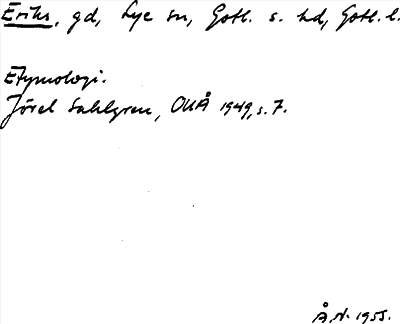 Eriks, gd, Lye sn, Gotl. s. hd, Gotl. l.
Etymologi.
Jöran Sahlgren, OUÅ 1949, s. 7.
Å.N. 1955.